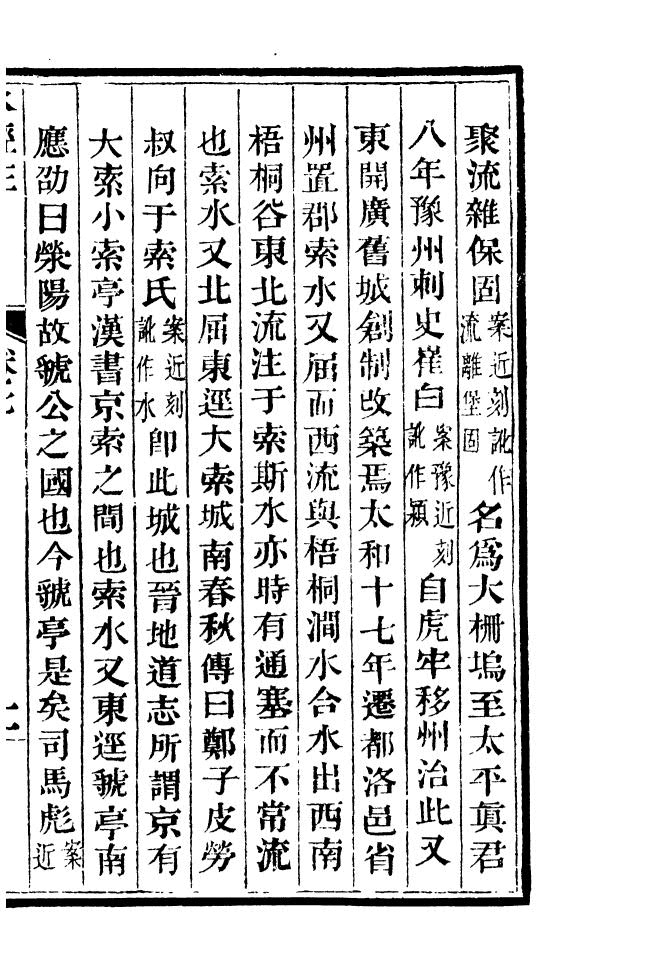 聚流雜保固案近刻訛作流離堡固名爲大柵塢至太平眞君
八年豫州刺史崔白案豫近刻訛作潁自虎牢移州治此又
東開廣舊城創制改築焉太和十七年遷都洛邑省
州置郡索水又屈而西流與梧桐澗水合水出西南
梧桐谷東北流注于索斯水亦時有通塞而不常流
也索水又北屈東逕大索城南春秋傳曰鄭子皮勞
叔向于索氏案近刻訛作水卽此城也晉地道志所謂京有
大索小索亭漢書京索之間也索水又東逕虢亭南
應劭曰滎陽故虢公之國也今虢亭是矣司馬彪案近